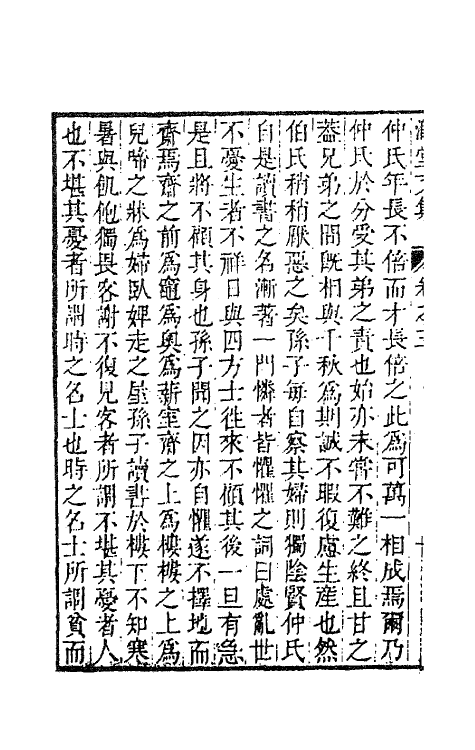 仲氏年長不倍而才長倍之此爲可萬一相成焉爾乃
仲氏於分受其弟之責也始亦未嘗不難之終且甘之
葢兄弟之間旣相與千秋爲期誠不暇復慮生產也然
伯氏稍稍厭惡之矣孫子每自察其婦則獨陰賢仲氏
自是讀書之名漸著一門憐者皆懼懼之詞曰處亂世
不憂生者不祥日與四方士徃來不顧其後一旦有急
是且將不顧其身也孫子聞之因亦自懼遂不擇地而
齋焉齋之前爲竈爲奥爲薪室齋之上爲樓樓之上爲
兒啼之牀爲婦臥婢走之壘孫子讀書於樓下不知寒
暑與飢他獨畏客謝不復見客者所謂不堪其憂者人
也不堪其憂者所謂時之名士也時之名士所謂貧而